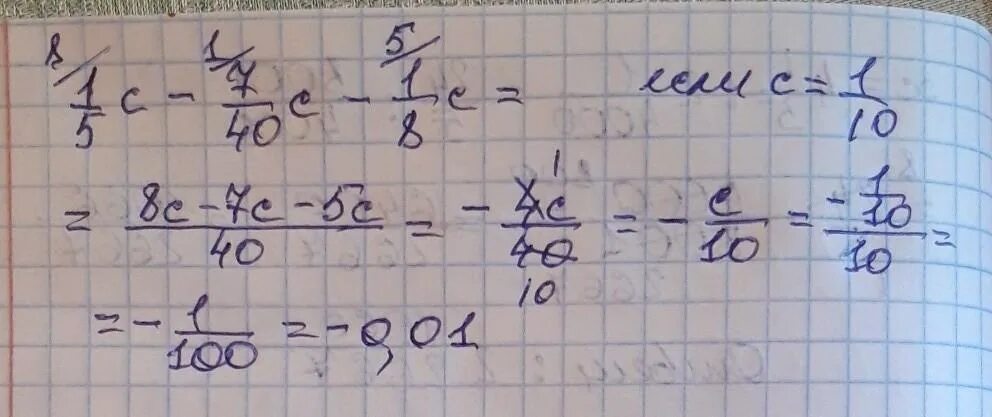 ⁸⁄ 1/5 c − ¹⁄ 7/40 c − ⁵⁄ 1/8 c = если c = 1/10
= (8c − 7c − 5c)/40 = − 4c/40 = − c/10 = (− 1/10)/10 =
= − 1/100 = − 0,01